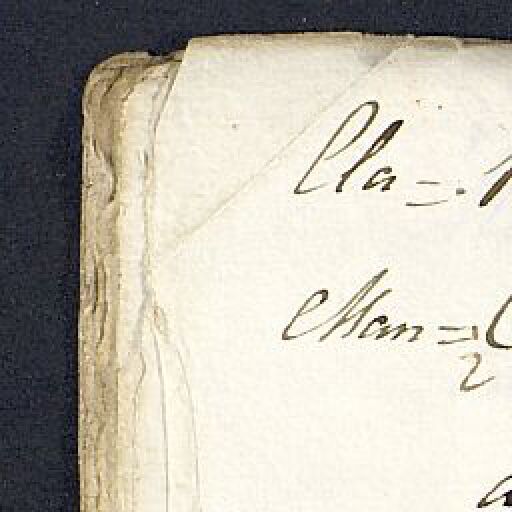 Cla=
Man=
2
a